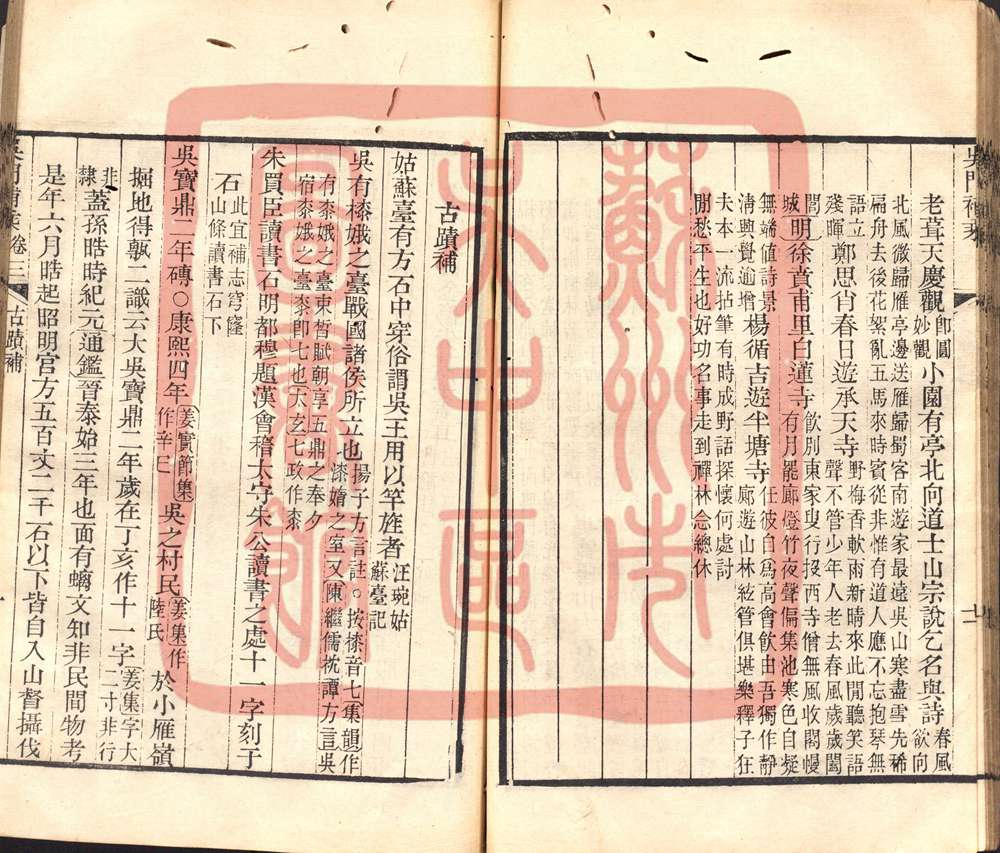 吳門補乘
老葺天慶觀即圓妙觀小園有亭北向道士山宗說乞名與詩春風欲向
北風微歸雁亭邊送雁歸蜀客南遊家最遠吳山寒盡雪先稀
扁舟去後花絮亂五馬來時賓從非惟有道人應不忘抱琴無
語立殘暉鄭思肖春日遊承天寺野梅香軟雨新晴來此閒聽笑語聲不管少年人老去春風歲歲闔
閭城明徐賁甫里白蓮寺飲別東家叟行投西寺僧無風收閣幔有月罷廊燈竹夜聲偏集池寒色自凝
無端值詩景清興覺逾增楊循吉遊半塘寺廊遊山林絃管俱堪樂釋子狂任彼自爲高會飲由吾獨作靜
夫本一流拈筆有時成野話探懷何處討
閒愁平生也好功名事走到禪林念總休
古蹟補
姑蘇臺有方石中穿俗謂吳王用以竿旌者汪琬姑蘇臺記
吳有㯃娥之臺戰國諸侯所立也揚子方言註。按㯃音七集韻作漆婿之室又陳繼儒枕譚方言吳
有桼娥之臺束晳賦朝享五鼎之奉夕宿桼娥之臺桼卽七也太玄七政作桼
朱買臣讀書石明都穆題漢會稽太守朱公讀書之處十一字刻于
石此宜補志穹窿山條讀書石下
吳寶鼎二年磚○康熙四年姜實節集作辛巳吳之村民姜集作陸氏於小雁嶺
掘地得甎二識云大吳寶鼎二年歲在丁亥作十一字姜集字大二寸非行
非隸蓋孫晧時紀元通鑑晉泰始三年也面有螭文知非民間物考
是年六月晧起昭明宮方五百丈二千石以下皆自入山督攝伐
吳門補乘卷三
古蹟補
蘇州市
吳中區
圖書館